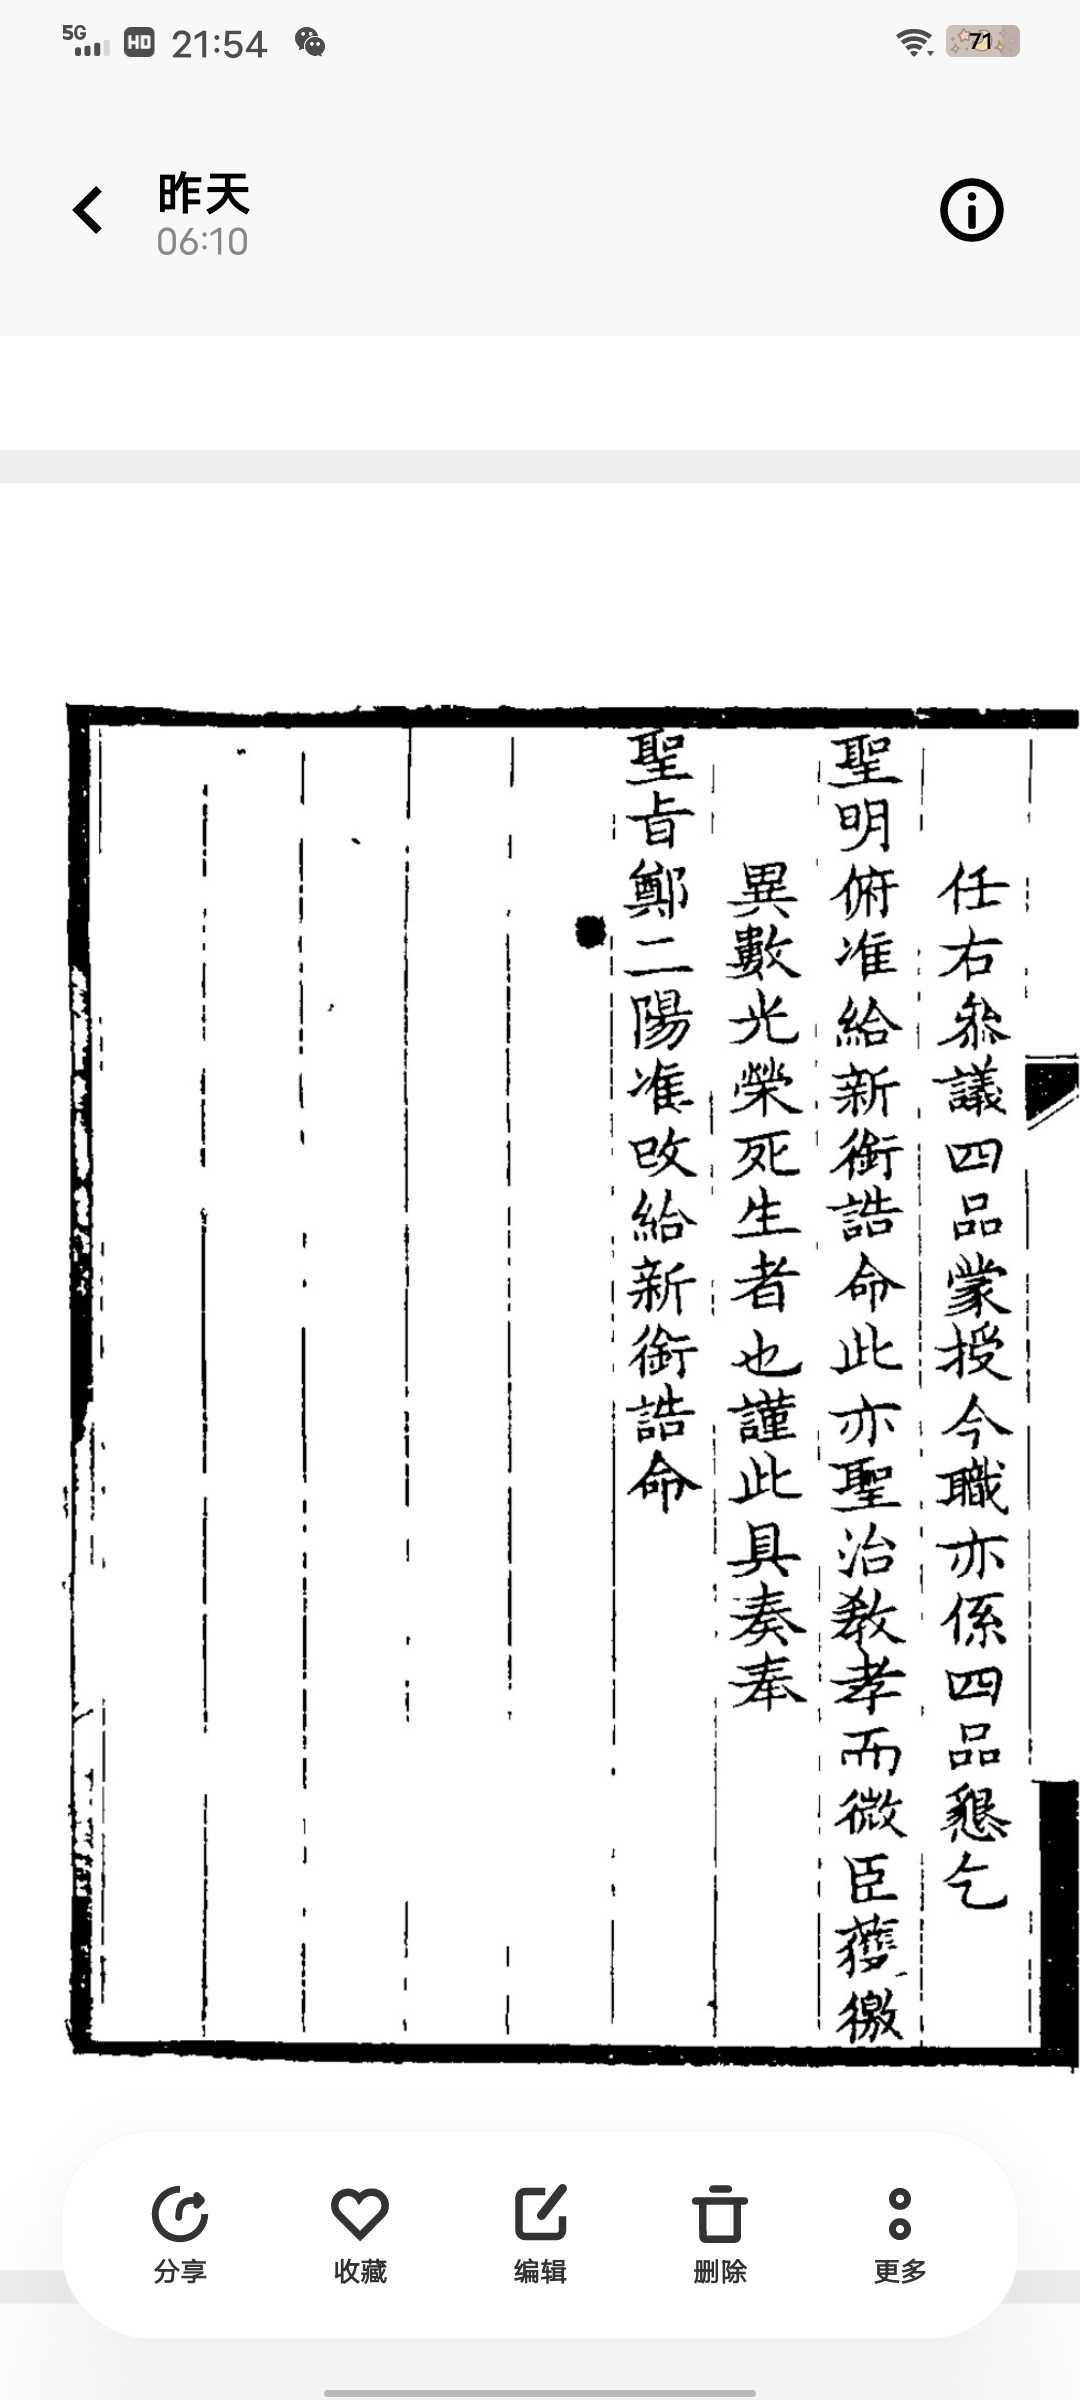 5G HD 21:54 71
昨天
06:10
任右叅議四品蒙授今職亦係四品懇乞
聖明俯准給新銜誥命此亦聖治教孝而微臣獲徼
異數光榮死生者也謹此具奏奉
聖旨鄭二陽准改給新銜誥命
分享 收藏 编辑 删除 更多